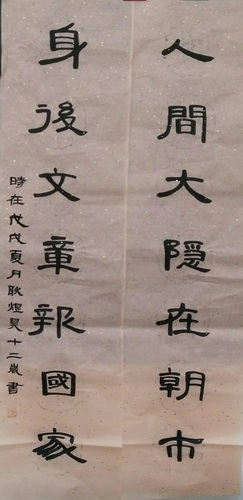 人間大隐在朝市
身後文章報國家
時在戊戌夏月耿煜昊十二歲書